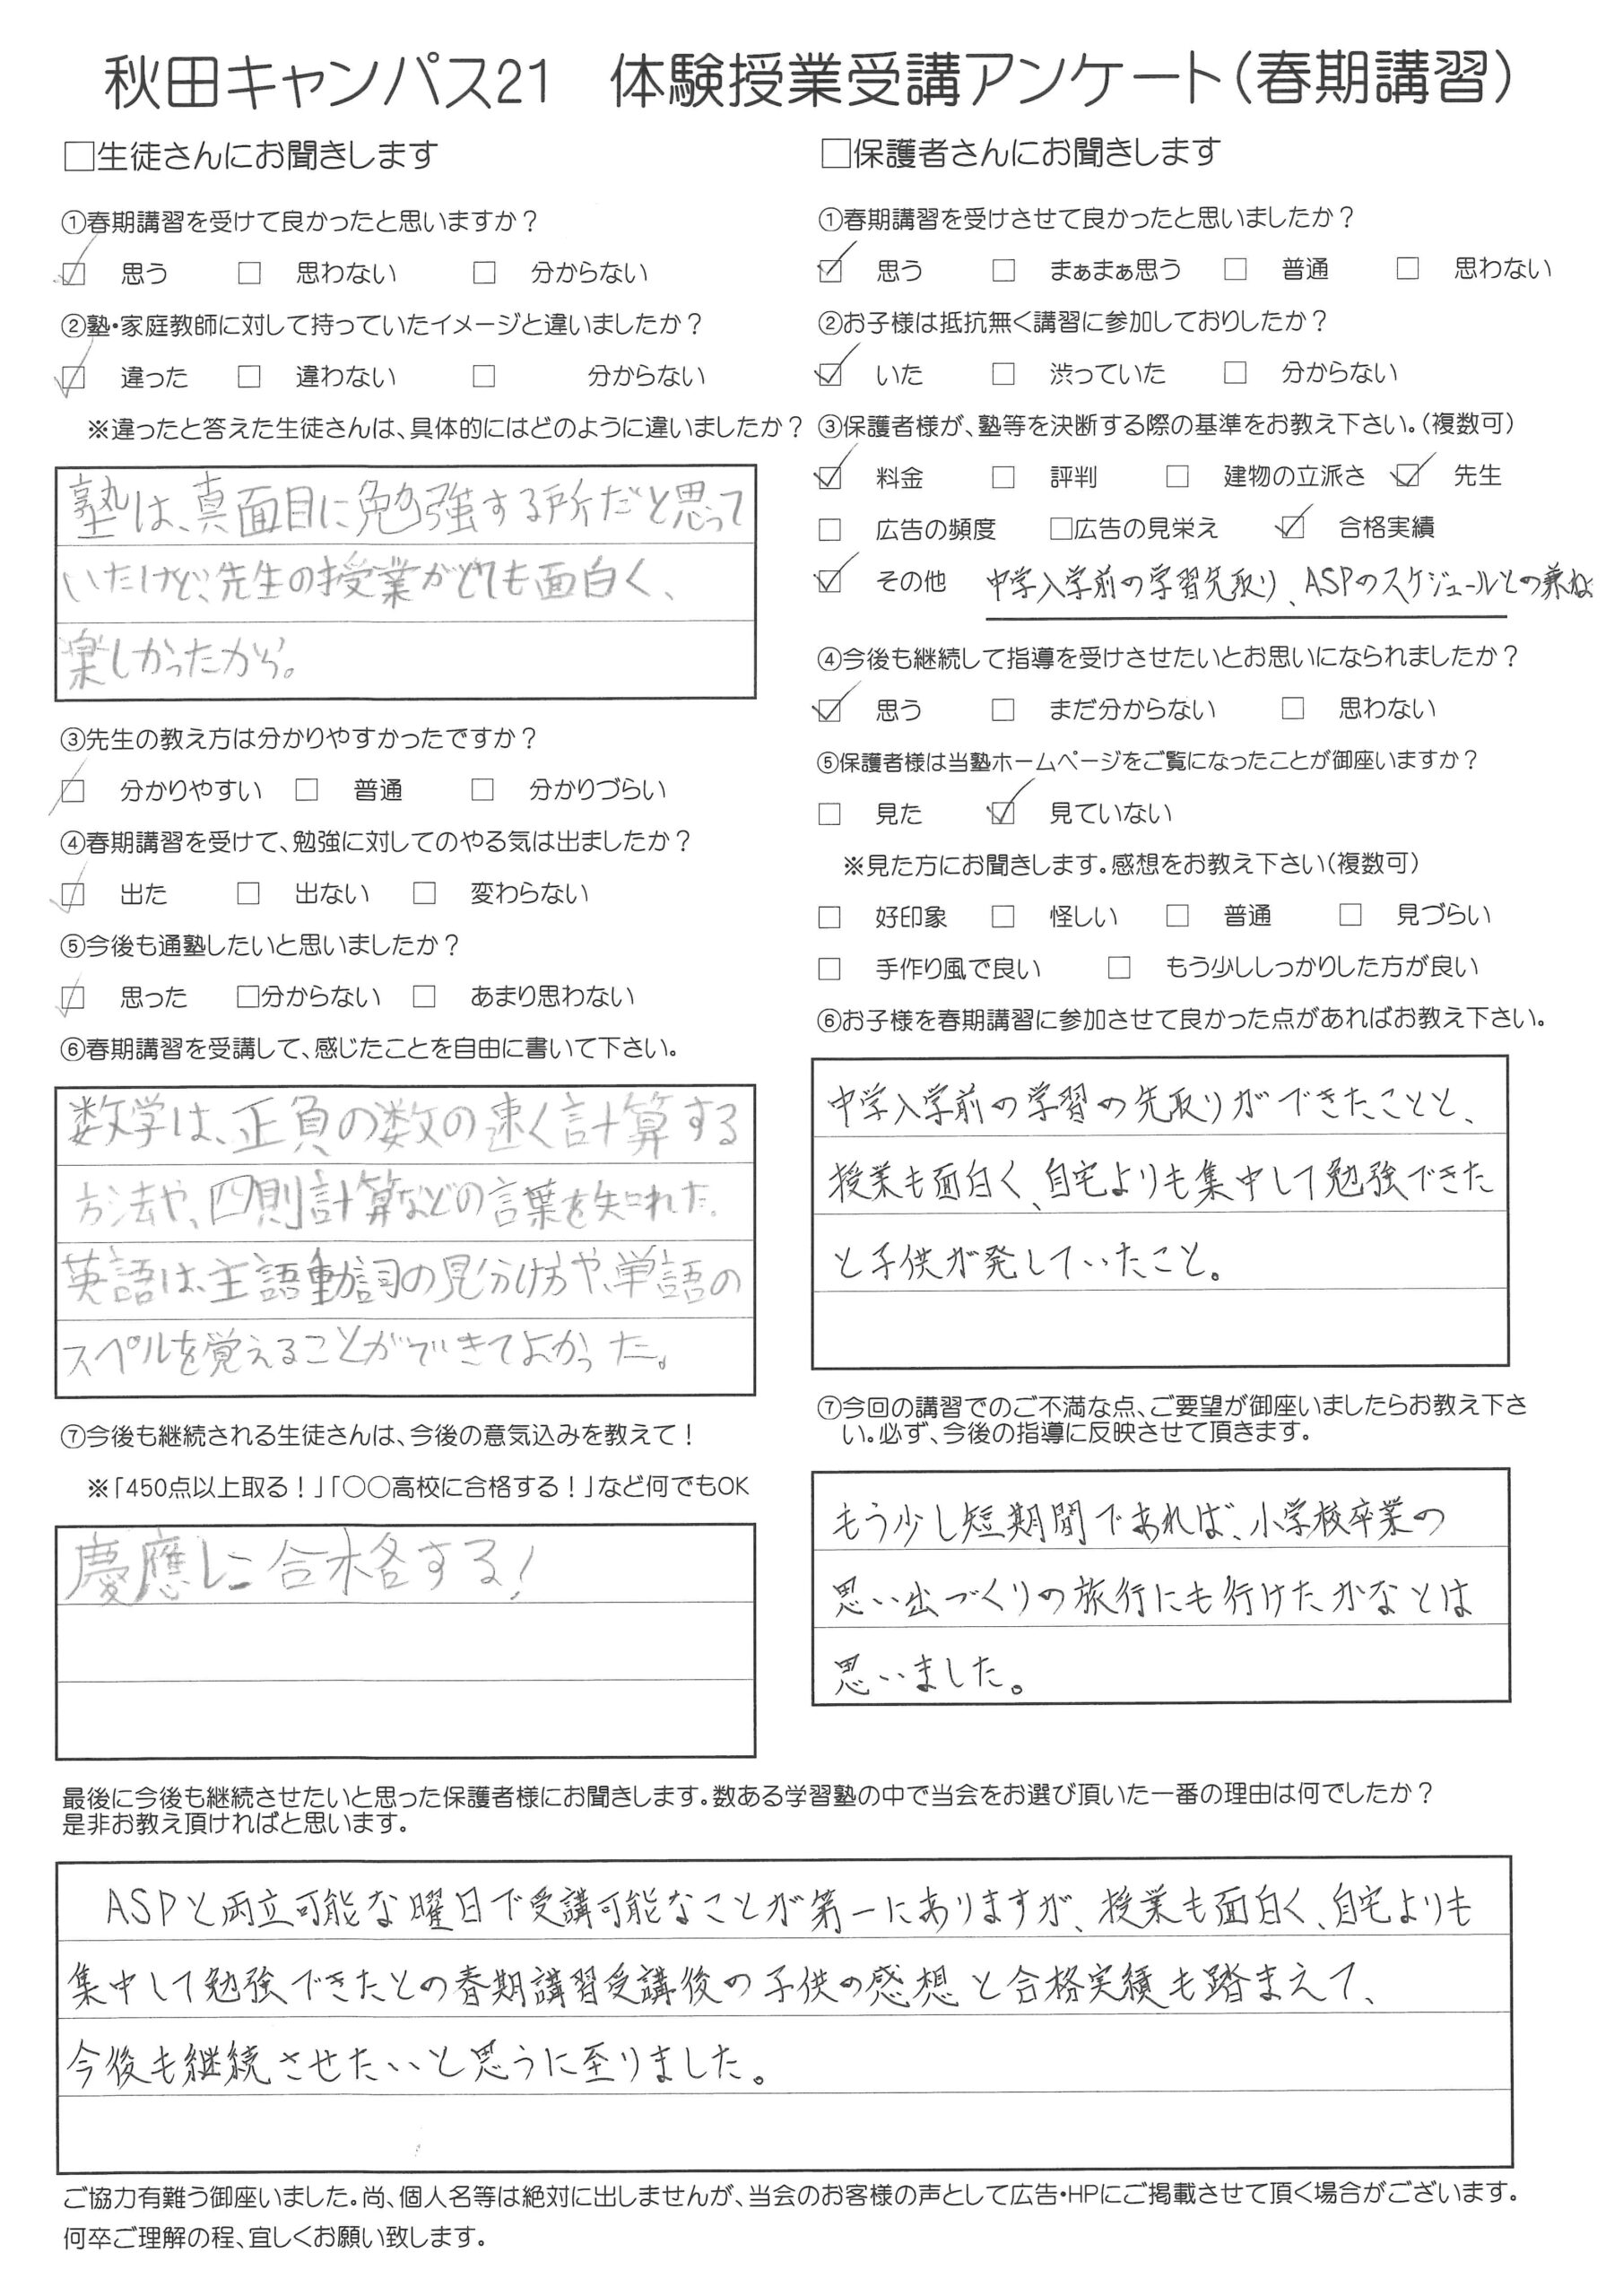 秋田キャンパス21　体験授業受講アンケート（春期講習）
□生徒さんにお聞きします
①春期講習を受けて良かったと思いますか？
☑ 思う □ 思わない □ 分からない
②塾・家庭教師に対して持っていたイメージと違いましたか？
☑ 違った □ 違わない □ 分からない
※違ったと答えた生徒さんは、具体的にはどのように違いましたか？
塾は、真面目に勉強する所だと思って
いたけど、先生の授業がとても面白く、
楽しかったから。
③先生の教え方は分かりやすかったですか？
☑ 分かりやすい □ 普通 □ 分かりづらい
④春期講習を受けて、勉強に対してのやる気は出ましたか？
☑ 出た □ 出ない □ 変わらない
⑤今後も通塾したいと思いましたか？
☑ 思った □分からない □ あまり思わない
⑥春期講習を受講して、感じたことを自由に書いて下さい。
数学は、正負の数の速く計算する
方法や、四則計算などの言葉を知れた。
英語は、主語動詞の見分け方や、単語の
スペルを覚えることができてよかった。
⑦今後も継続される生徒さんは、今後の意気込みを教えて！
※「450点以上取る！」「○○高校に合格する！」など何でもOK
慶應に合格する！
□保護者さんにお聞きします
①春期講習を受けさせて良かったと思いましたか？
☑ 思う □ まぁまぁ思う □ 普通 □ 思わない
②お子様は抵抗無く講習に参加しておりしたか？
☑ いた □ 渋っていた □ 分からない
③保護者様が、塾等を決断する際の基準をお教え下さい。（複数可）
☑ 料金 □ 評判 □ 建物の立派さ ☑ 先生
□ 広告の頻度 □広告の見栄え ☑ 合格実績
☑ その他 中学入学前の学習先取り、ASPのスケジュールとの兼ね
④今後も継続して指導を受けさせたいとお思いになられましたか？
☑ 思う □ まだ分からない □ 思わない
⑤保護者様は当塾ホームページをご覧になったことが御座いますか？
□ 見た ☑ 見ていない
※見た方にお聞きします。感想をお教え下さい（複数可）
□ 好印象 □ 怪しい □ 普通 □ 見づらい
□ 手作り風で良い □ もう少ししっかりした方が良い
⑥お子様を春期講習に参加させて良かった点があればお教え下さい。
中学入学前の学習の先取りができたことと、
授業も面白く、自宅よりも集中して勉強できた
と子供が発していたこと。
⑦今回の講習でのご不満な点、ご要望が御座いましたらお教え下さ
い。必ず、今後の指導に反映させて頂きます。
もう少し短期間であれば、小学校卒業の
思い出づくりの旅行にも行けたかなとは
思いました。
最後に今後も継続させたいと思った保護者様にお聞きします。数ある学習塾の中で当会をお選び頂いた一番の理由は何でしたか？
是非お教え頂ければと思います。
ASPと両立可能な曜日で受講可能なことが第一にありますが、授業も面白く、自宅よりも
集中して勉強できたとの春期講習受講後の子供の感想と合格実績も踏まえて、
今後も継続させたいと思うに至りました。
ご協力有難う御座いました。尚、個人名等は絶対に出しませんが、当会のお客様の声として広告・HPにご掲載させて頂く場合がございます。
何卒ご理解の程、宜しくお願い致します。